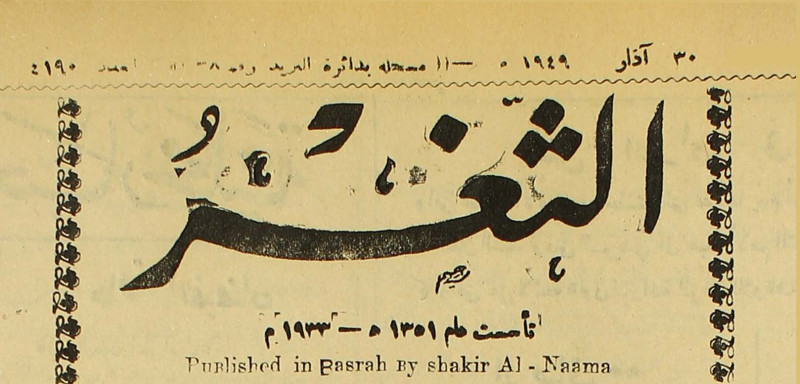 ٣٠ آذار ١٩٤٩ مسجله بدائرة البريد ٤١٩٠
الثَّغْرُ
تأسست عام ١٣٥١ ه — ١٩٣٣ م
Published in Basrah By shakir Al - Naama